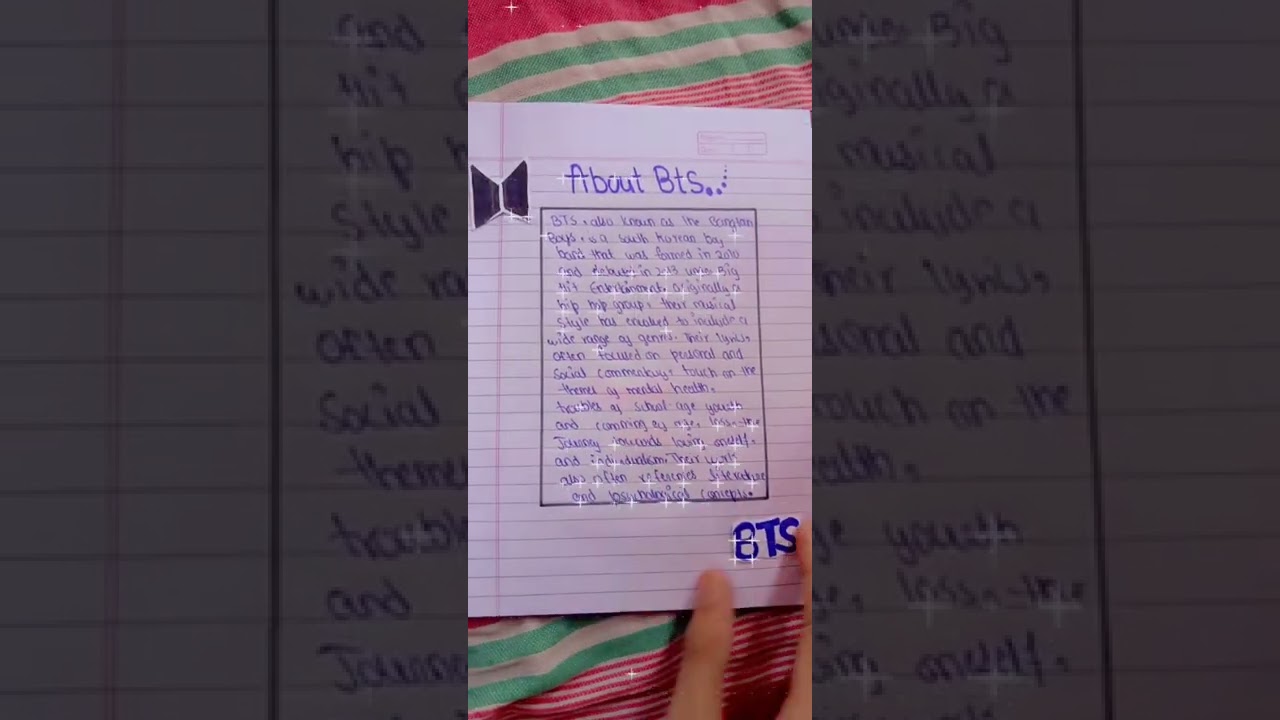 About BTS..
BTS, also known as the Bangtan
Boys, is a south korean boy
band that was formed in 2010
and debuted in 2013 under Big
Hit Entertainment. originally a
hip hop group, their musical
style has evolved to include a
wide range of genres. Their lyrics,
often focused on personal and
Social Commentary, touch on the
themes of mental health,
troubles of school age youth
and coming of age, loss, the
Journey towards loving oneself,
and individualism. Their work
also often references literature
and psychological concepts.
BTS